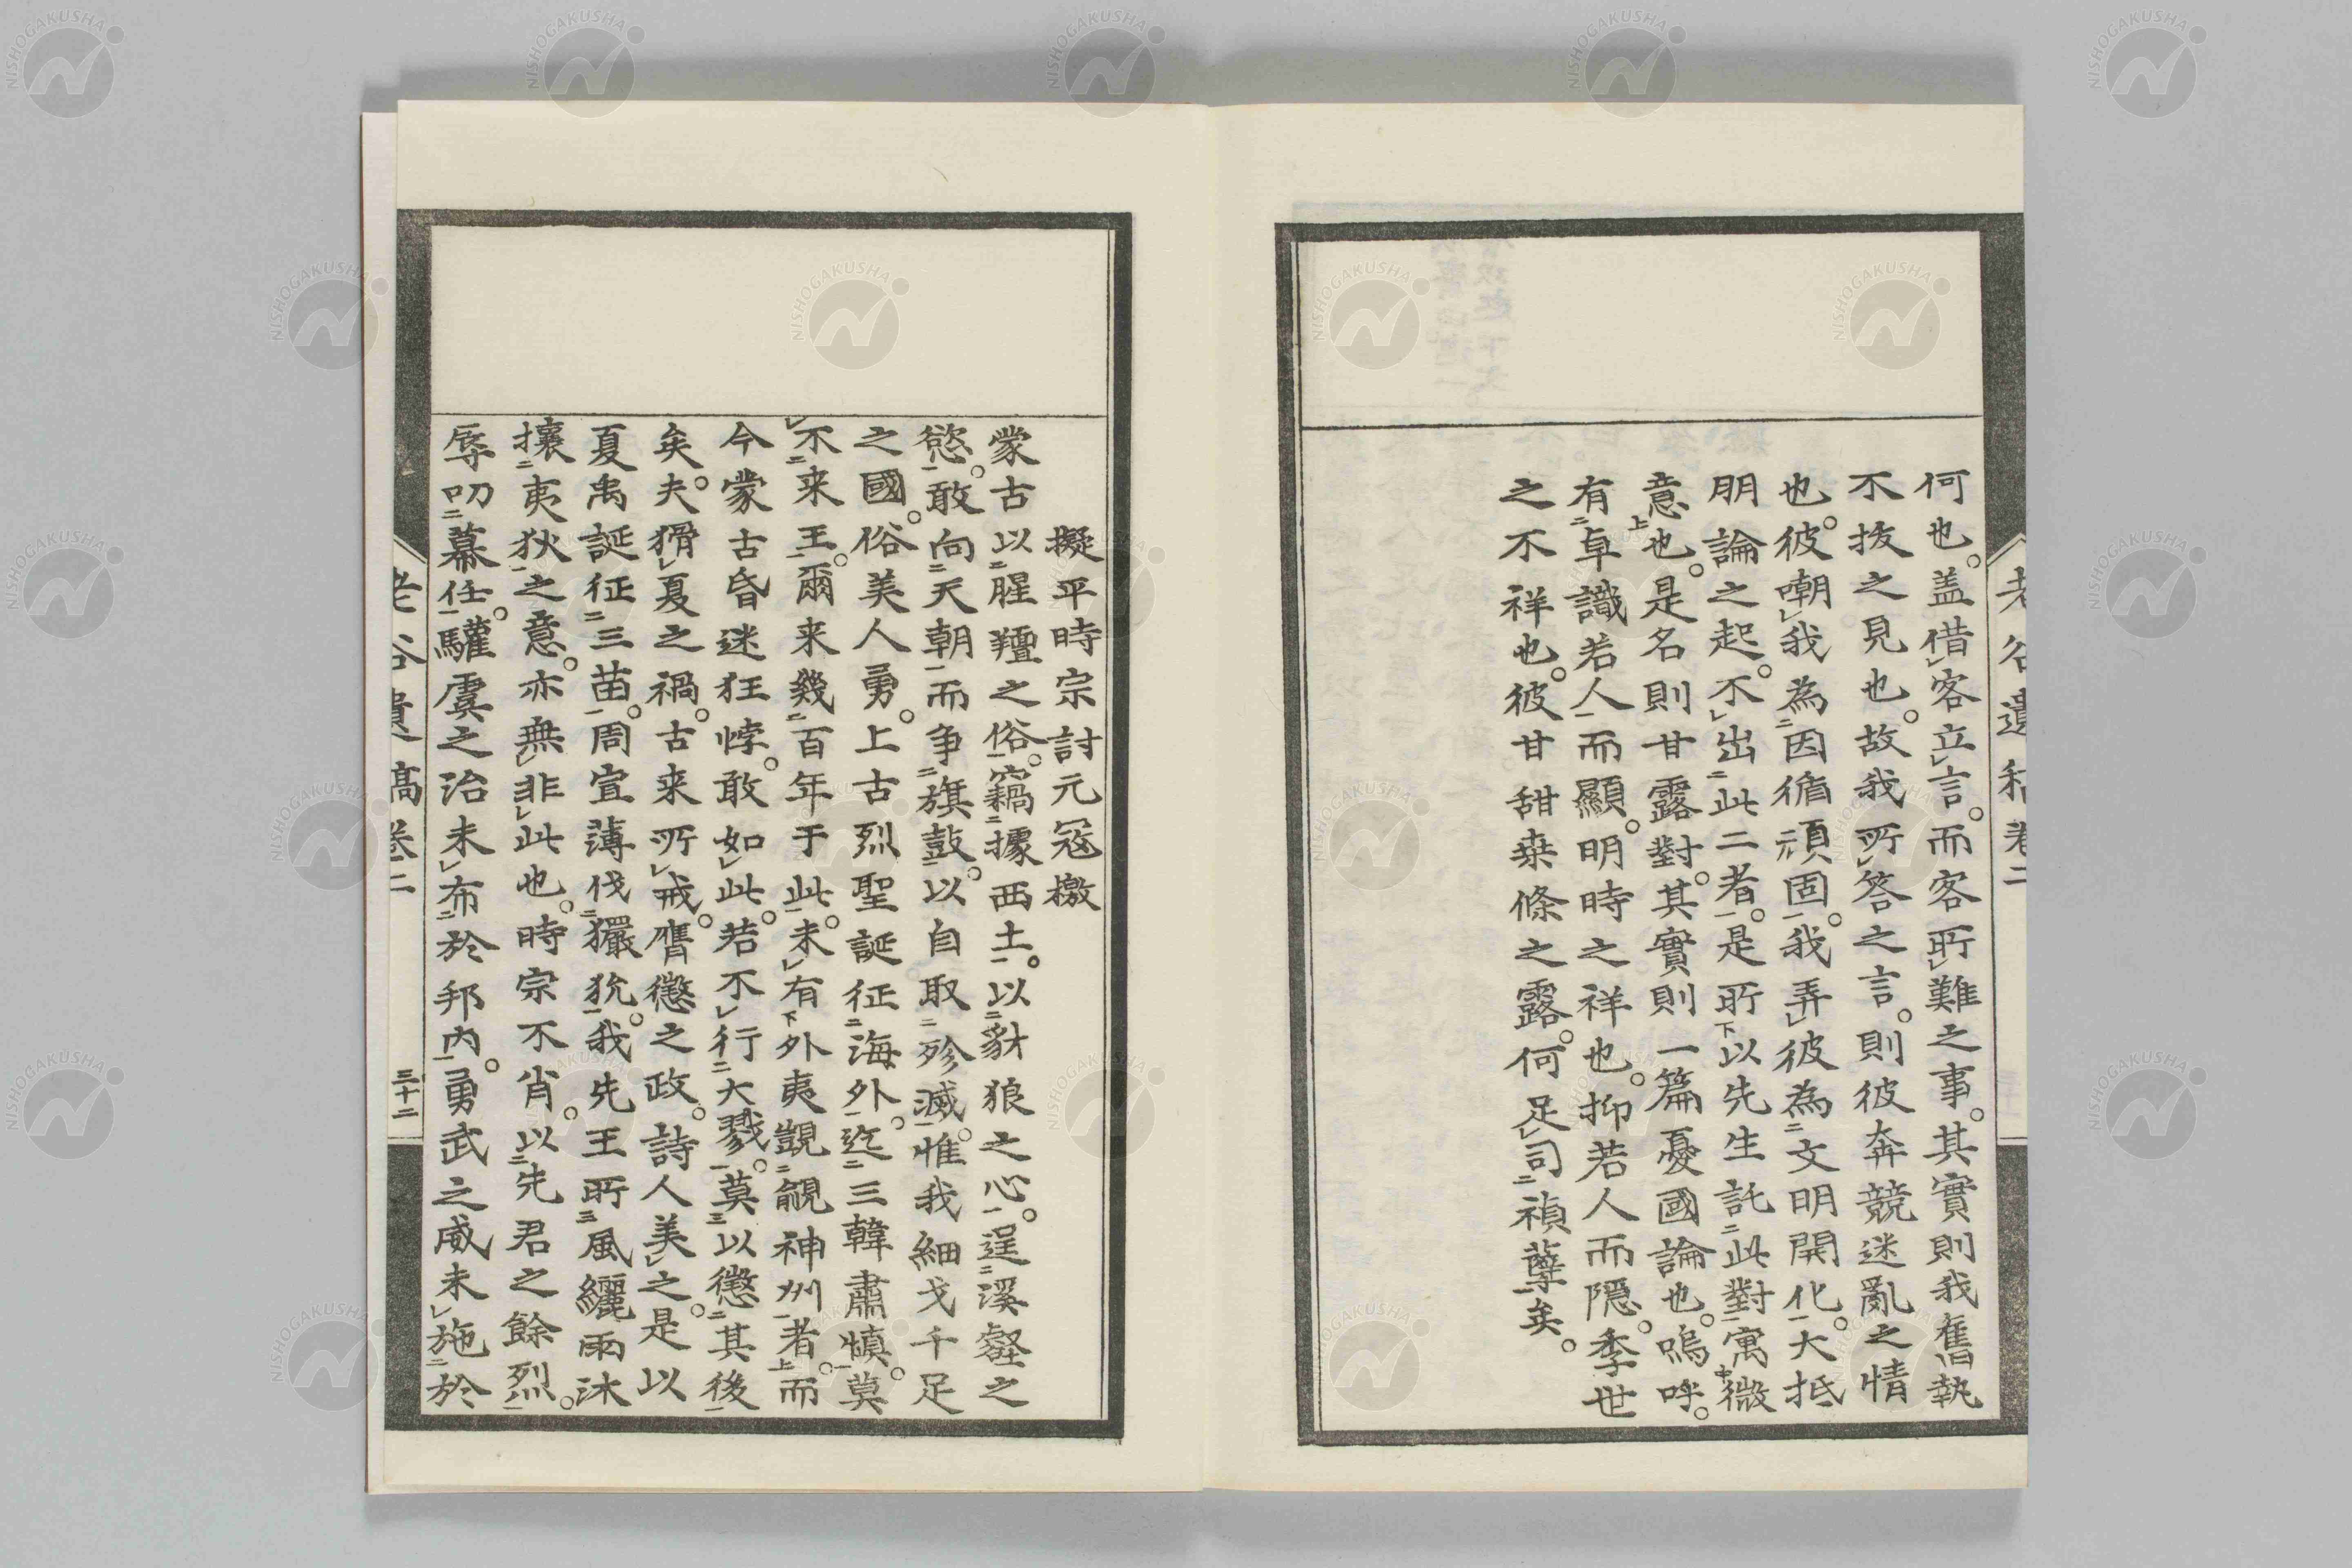 老谷遺稿卷二
何也。盖借客立言。而客所難之事。其實則我舊執
不拔之見也。故我所答之言。則彼奔競迷亂之情
也。彼嘲我為因循頑固。我弄彼為文明開化。大抵
朋論之起。不出此二者。是所以先生託此對寓微
意也。是名則甘露對。其實則一篇憂國論也。嗚呼。
有卓識若人而顯。明時之祥也。抑若人而隱。季世
之不祥也。彼甘甜桒條之露。何足司禎孽矣。
擬平時宗討元寇檄
蒙古以腥羶之俗。竊據西土。以豺狼之心。逞溪壑之
慾。敢向天朝而争旗鼓。以自取殄滅。惟我細戈千足
之國。俗美人勇。上古烈聖誕征海外。迄三韓肅慎。莫
不来王。爾来幾百年于此。未有外夷覬覦神州者。而
今蒙古昏迷狂悖。敢如此。若不行大戮。莫以懲其後
矣。夫猾夏之禍。古来所戒。膺懲之政。詩人美之。是以
夏禹誕征三苗。周宣薄伐玁狁。我先王所風纚雨沐
攘夷狄之意。亦無非此也。時宗不肖。以先君之餘烈。
辱叨幕任。驩虞之治未布於邦内。勇武之威未施於
老谷遺稿卷二
三十二
NISHOGAKUSHA